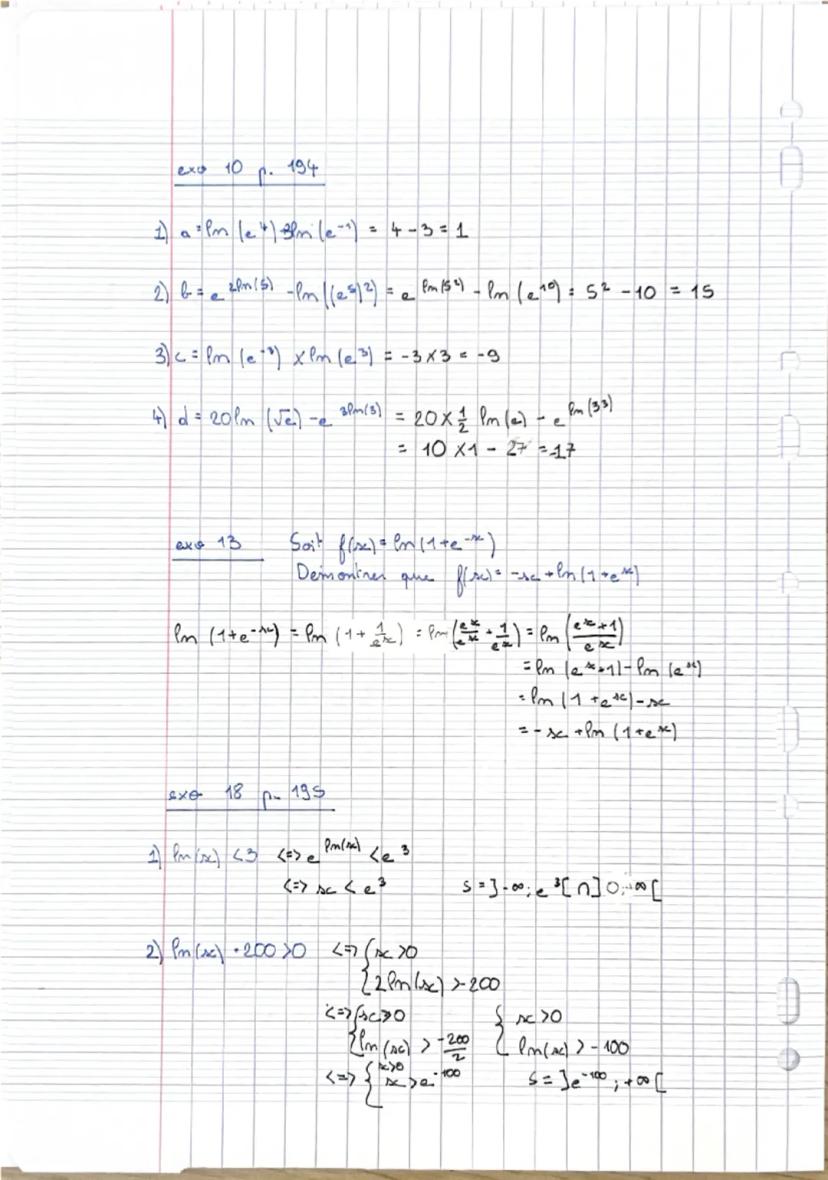 exo 10 p. 194
1) a = ln (e^4) + 3ln (e^-1) = 4 - 3 = 1
2) b = e^2ln(5) - ln((e^5)^2) = e^ln(5^2) - ln (e^10) = 5^2 - 10 = 15
3) c = ln (e^-3) × ln (e^3) = -3 × 3 = -9
4) d = 20ln (√e) - e^3ln(3) = 20 × 1/2 ln(e) - e^ln(3^3)
= 10 × 1 - 27 = -17
exo 13 Soit f(x) = ln(1+e^-x)
Démontrer que f(x) = -x + ln(1+e^x)
ln (1+e^-x) = ln (1 + 1/e^x) = ln (e^x/e^x + 1/e^x) = ln ((e^x+1)/e^x)
= ln (e^x+1) - ln (e^x)
= ln (1 + e^x) - x
= -x + ln (1+e^x)
exo 18 p. 195
1) ln(x) < 3 <=> e^ln(x) < e^3
<=> x < e^3 S = ]-∞; e^3[ ∩ ]0; +∞[
2) ln(x) + 200 > 0 <=> { x > 0
{ 2ln(x) > -200
<=> { x > 0 { x > 0
{ ln(x) > -200/2 { ln(x) > -100
<=> { x > 0
{ x > e^-100 S = ]e^-100 ; +∞[